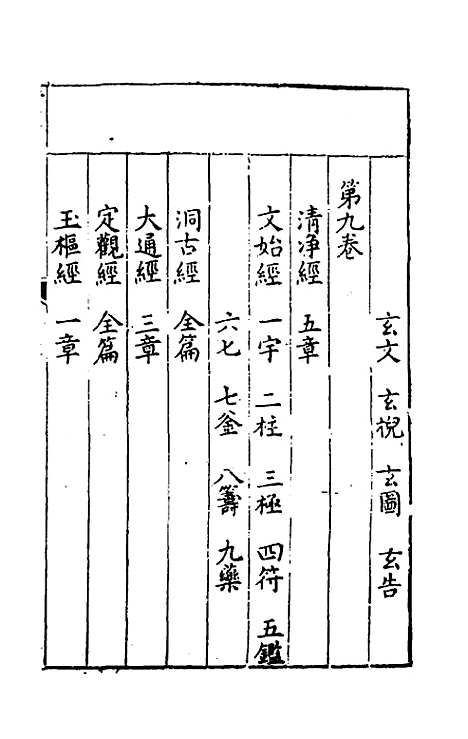 玄文 玄掜 玄圖 玄告
第九卷
清淨經 五章
文始經 一宇 二柱 三極 四符 五鑑
六七 七釜 八籌 九藥
洞古經 全篇
大通經 三章
定觀經 全篇
玉樞經 一章